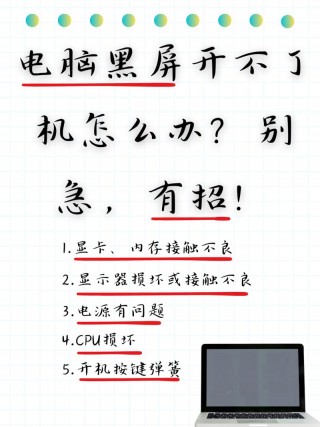 电脑黑屏开不了
机怎么办？别
急，有招！
1.显卡、内存接触不良
2.显示器损坏或接触不良
3.电源有问题
4.CPU损坏
5.开机按键弹簧